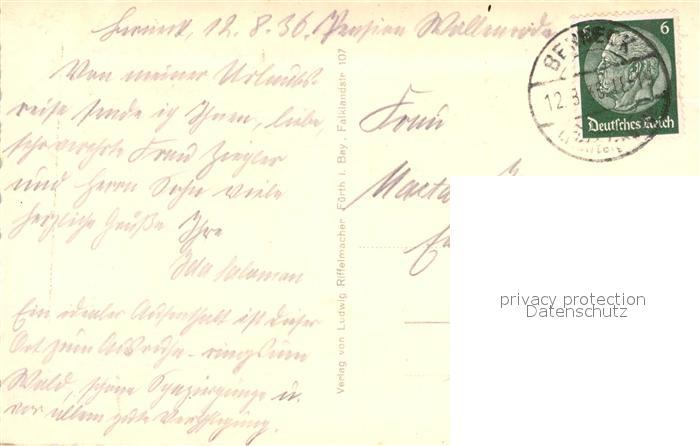 Berneck, 12.8.36. Pension Wallenrode
Von meiner Urlaubs-
reise sende ich Ihnen, liebe,
sehr verehrte Frau Ziegler
und Herrn Sohn viele
herzliche Grüße Ihre
Ida Salomon
Ein idealer Aufenthalt ist dieser
Ort zum Ausruhn - ringsum
Wald, schöne Spaziergänge u.
vor allem gute Verpflegung.
Verlag von Ludwig Riffelmacher, Fürth i. Bay., Falklandstr 107
Frau
6
Deutsches Reich
BERNECK
12.8.
privacy protection
Datenschutz